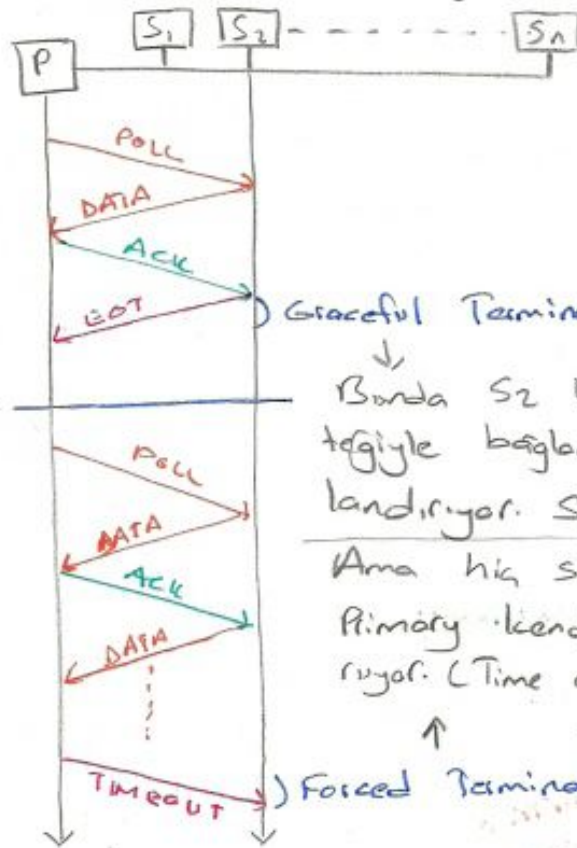 P S1 S2 Sn
POLL
DATA
ACK
EOT
Graceful Termin
Bunda S2
teğiyle bağla
landırıyor. S
POLL
DATA
ACK
Ama hiç s
DATA
Primary kend
rıyor. (Time
TIMEOUT
Forced Termina